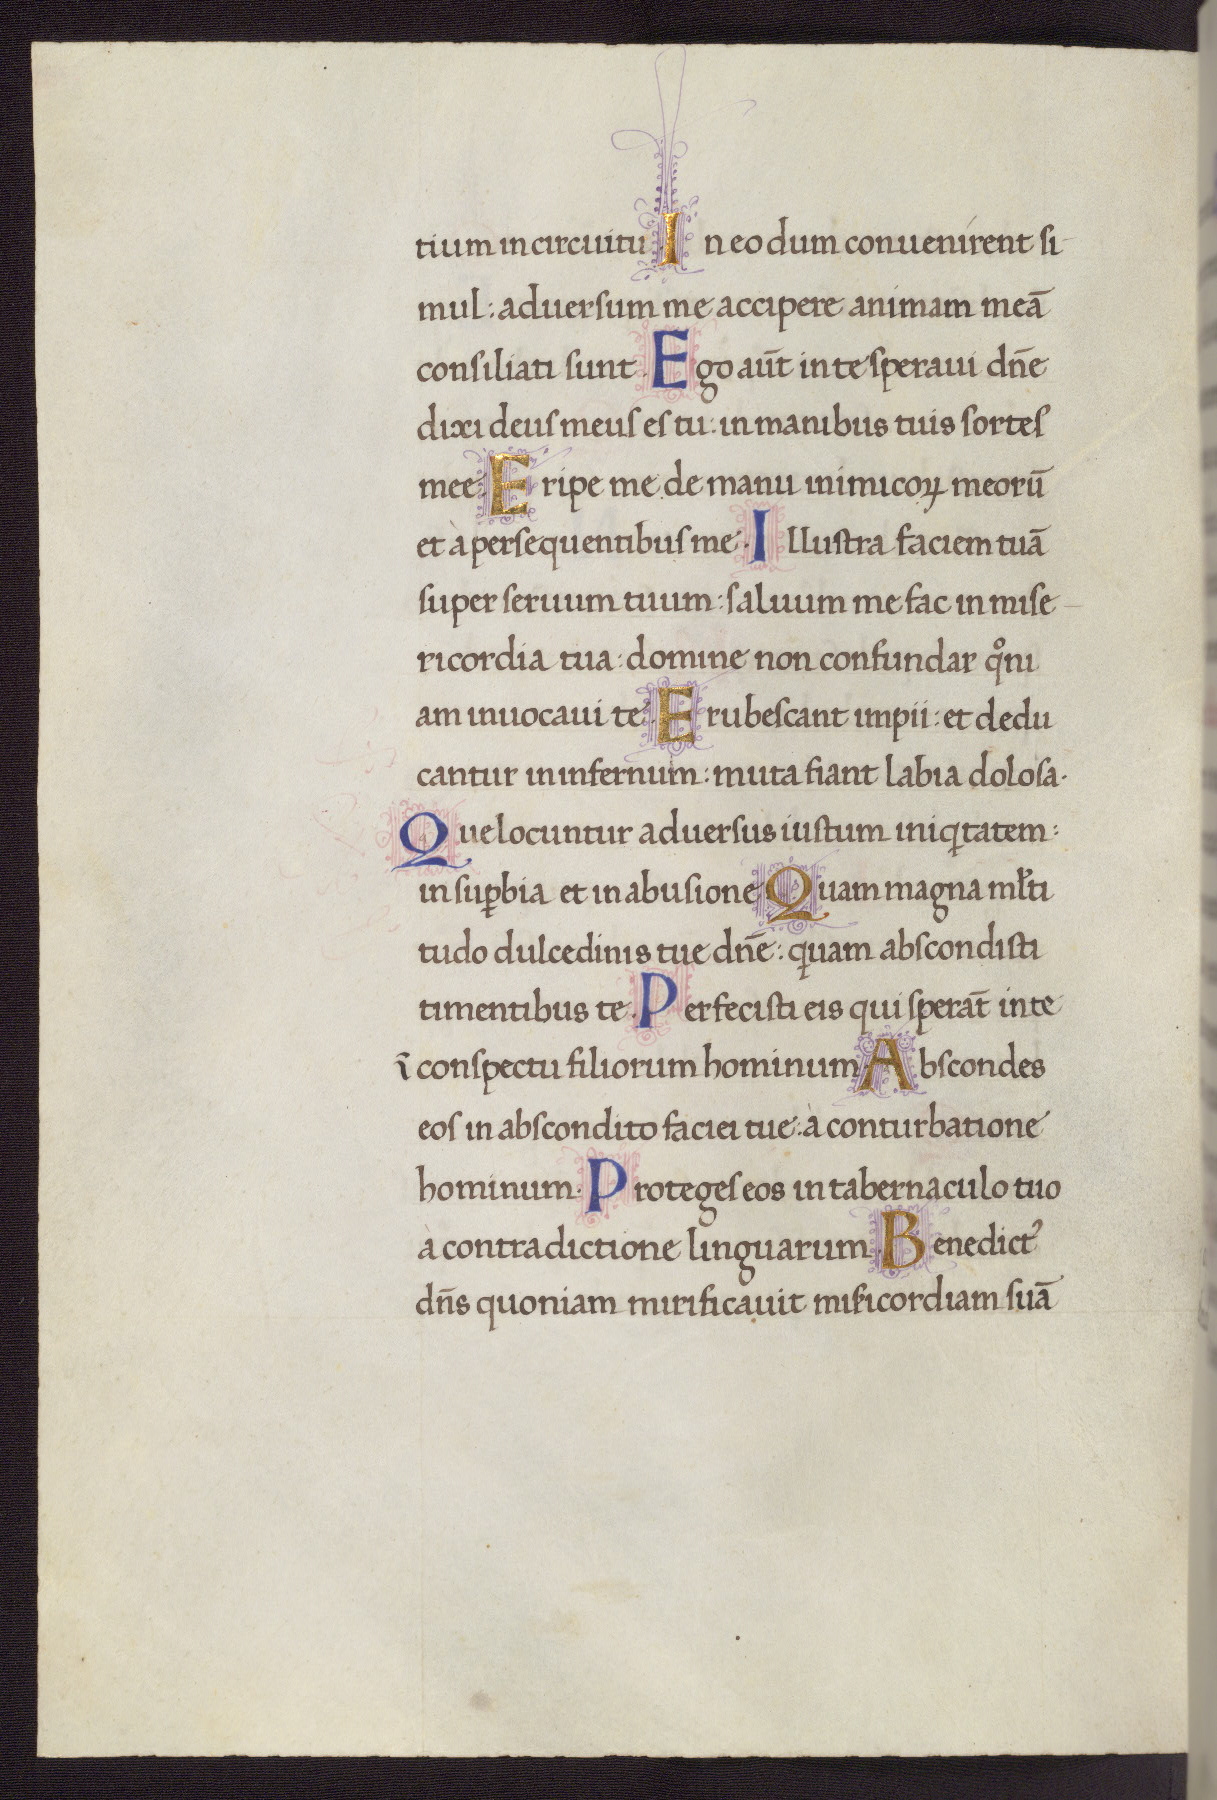 tium in circuitu. In eo dum conuenirent si-
mul: aduersum me accipere animam meā
consiliati sunt. Ego aūt in te speraui dn̄e
dixi deus meus es tu: in manibus tuis sortes
mee. Eripe me de manu inimicoꝝ meorū
et à persequentibus me. Illustra faciem tuā
super seruum tuum: saluum me fac in mise-
ricordia tua: domine non confundar qͦni
am inuocaui te. Erubescant impii: et dedu
cantur in infernum: muta fiant labia dolosa.
Que locuntur aduersus iustum iniqͥtatem:
in suꝑbia et in abusione. Quam magna ml̄ti
tudo dulcedinis tue dn̄e: quam abscondisti
timentibus te. Perfecisti eis qui sperāt in te
ī conspectu filiorum hominum. Abscondes
eos in abscondito faciei tue: à conturbatione
hominum. Proteges eos in tabernaculo tuo
à contradictione linguarum. Benedictꝰ
dn̄s quoniam mirificauit mi̅s̅icordiam suā